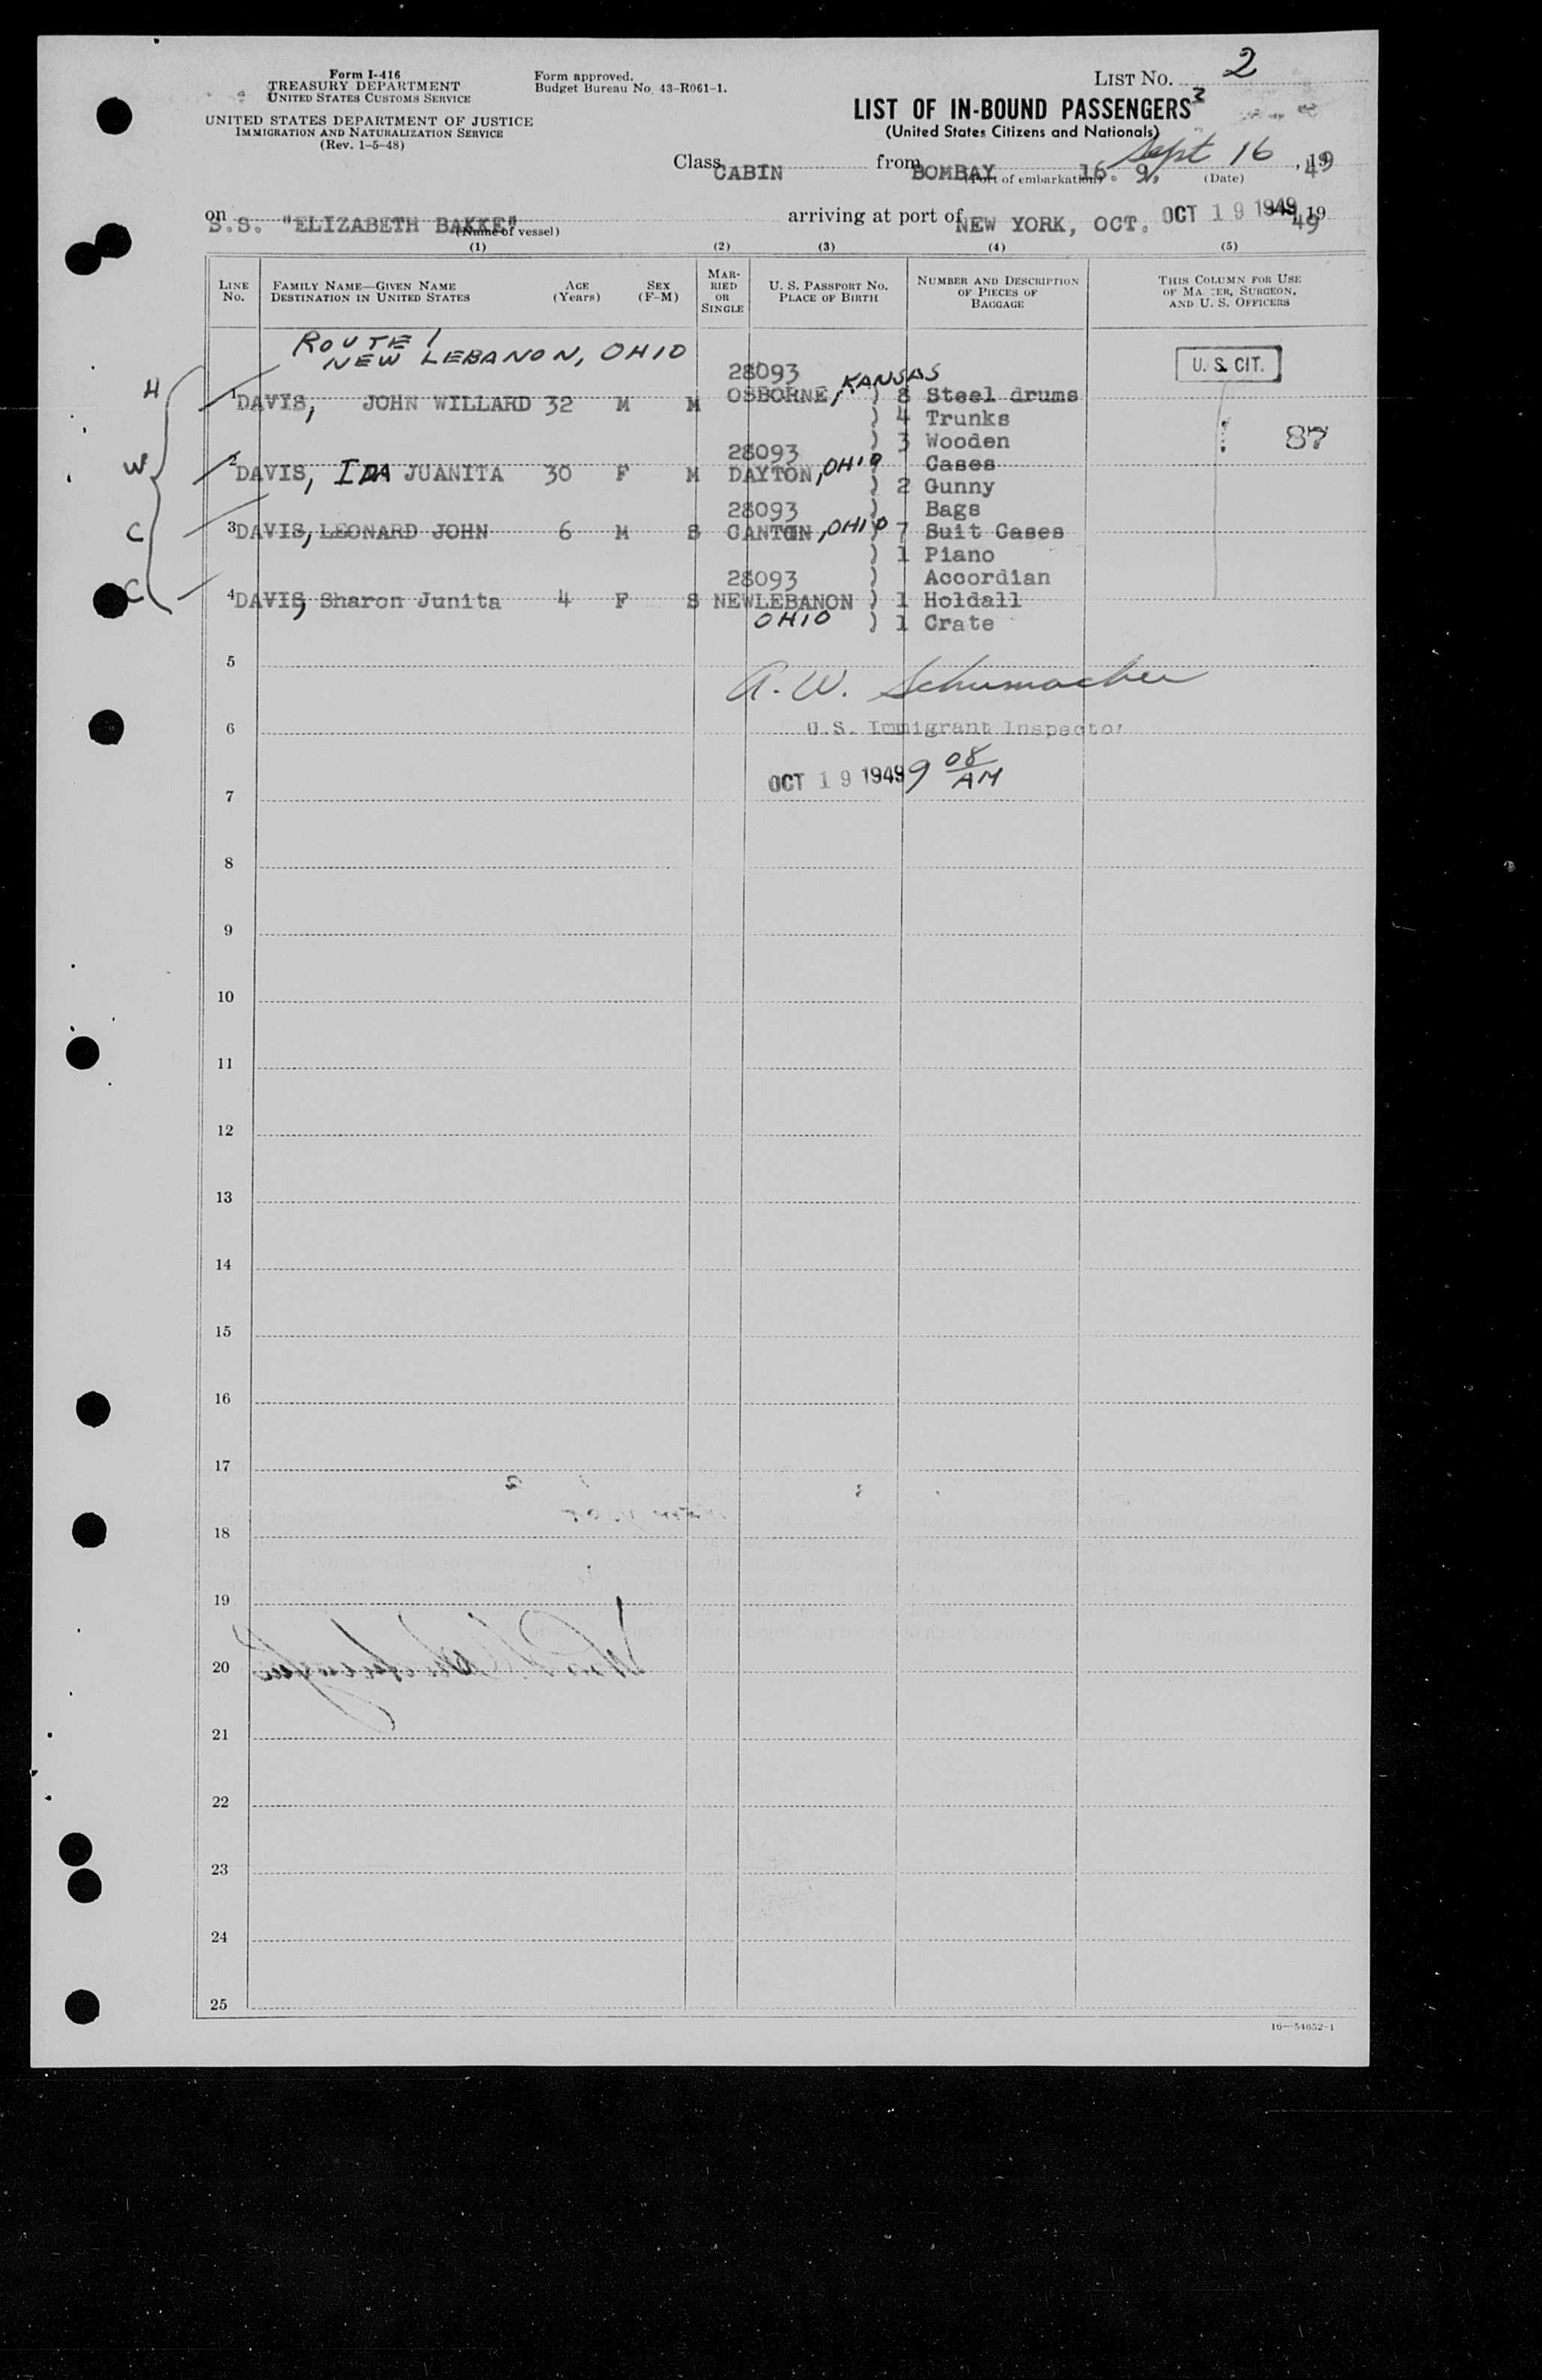 Form I-416
TREASURY DEPARTMENT
UNITED STATES CUSTOMS SERVICE
UNITED STATES DEPARTMENT OF JUSTICE
IMMIGRATION AND NATURALIZATION SERVICE
(Rev. 1-5-48)
Form approved.
Budget Bureau No. 43-R061-1.
LIST No. 2
LIST OF IN-BOUND PASSENGERS
(United States Citizens and Nationals)
Class CABIN from BOMBAY 16. 9. Sept 16, 1949
(Port of embarkation) (Date)
on S.S. "ELIZABETH BAKKE" arriving at port of NEW YORK, OCT. OCT 19 1949, 1949
(Name of vessel)
(1) (2) (3) (4) (5)
LINE No. FAMILY NAME—GIVEN NAME DESTINATION IN UNITED STATES AGE (Years) SEX (F-M) MARRIED OR SINGLE U. S. PASSPORT No. PLACE OF BIRTH NUMBER AND DESCRIPTION OF PIECES OF BAGGAGE THIS COLUMN FOR USE OF MASTER, SURGEON, AND U. S. OFFICERS
ROUTE 1
NEW LEBANON, OHIO
U. S. CIT.
28093
H 1 DAVIS, JOHN WILLARD 32 M M OSBORNE, KANSAS ) 8 Steel drums
) 4 Trunks
28093 ) 3 Wooden 87
W 2 DAVIS, IDA JUANITA 30 F M DAYTON, OHIO Cases
) 2 Gunny
28093 ) Bags
C 3 DAVIS, LEONARD JOHN 6 M S CANTON, OHIO ) 7 Suit Cases
) 1 Piano
28093 ) Accordian
C 4 DAVIS, Sharon Junita 4 F S NEWLEBANON ) 1 Holdall
OHIO ) 1 Crate
5
A. W. Schumacher
6 U.S. Immigrant Inspector
OCT 19 1949 9 08 AM
7
8
9
10
11
12
13
14
15
16
17
18
19
20
21
22
23
24
25
16—54652-1